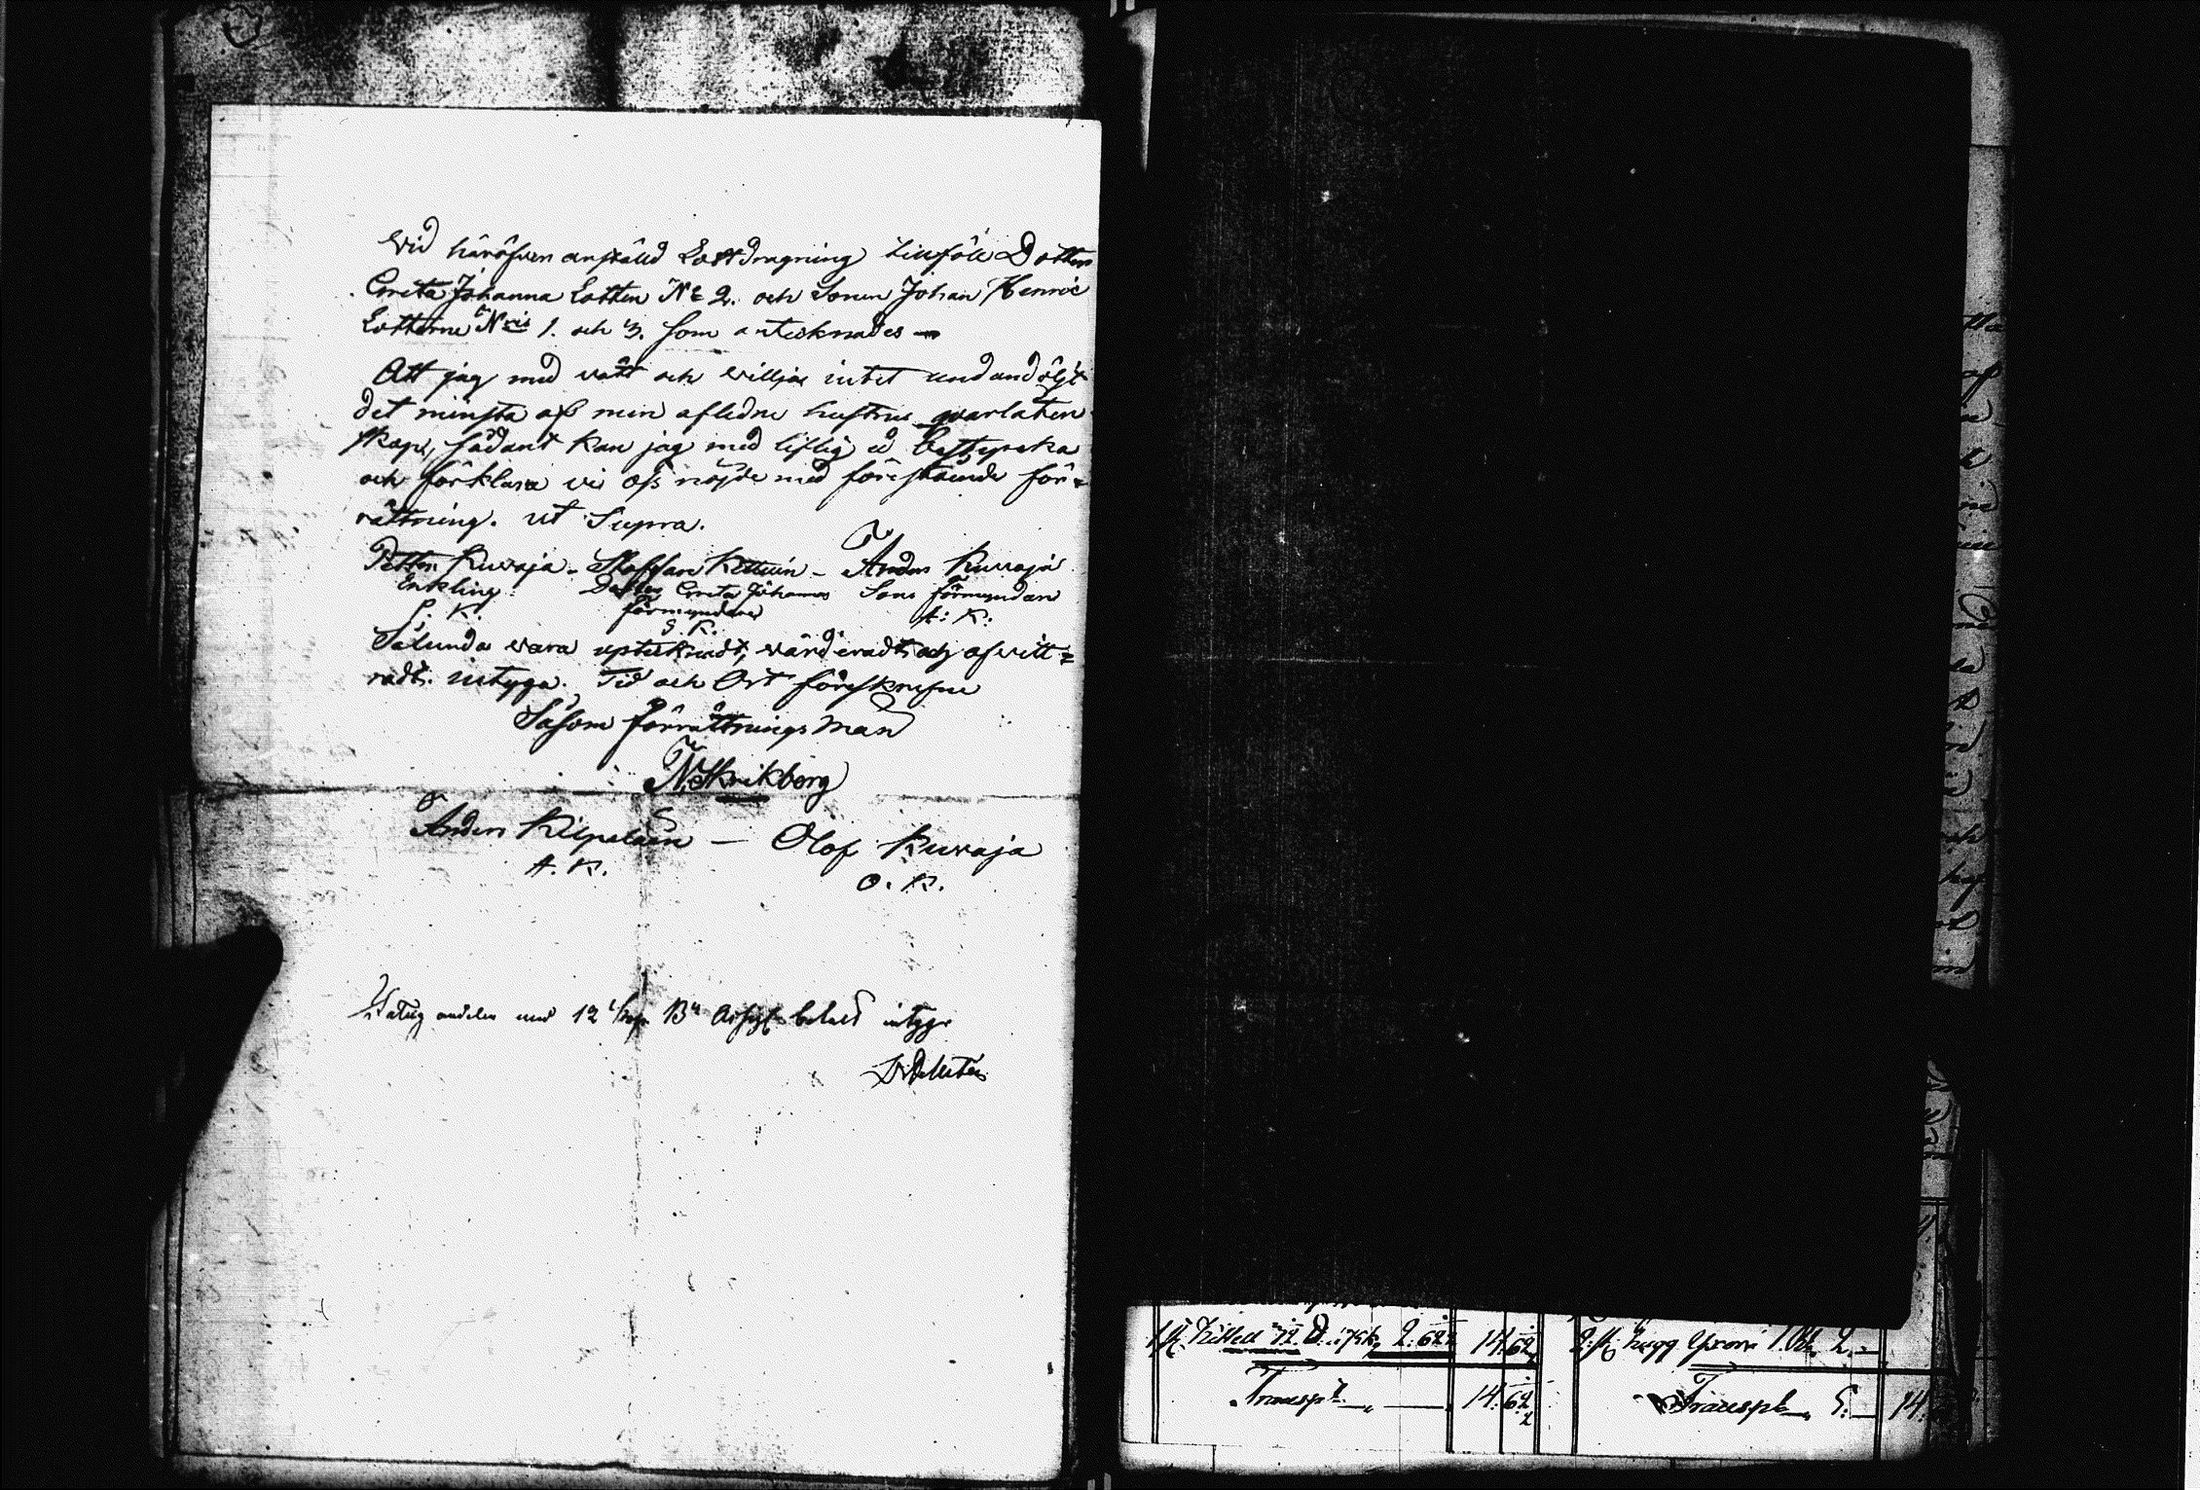 Wid häröfwer anstäld Lottdragning tillföll Dottren
Greta Johanna Lotten No 2. och Sonen Johan Henric
Lotterne Nris 1. och 3. som antecknades —
Att jag med vett och willja intet undandöljt
det minsta af min afledne hustrus qvarlåten
skap, sådant kan jag med liflig ed bestyrcka
och förklara vi oss nöjde med förestående för-
rättning. ut Supra.
Petter Kuvaja - Staffan - Anders Kuvaja
Enkling Dotter Greta Johannas Sons förmyndare
P. K. förmyndare A: K:
S. K.
Sålunda vara upteknadt, wärderadt och afvitt-
radt. intyga. Tid och Ort föreskrefne
Såsom förrättnings Man
N. Skrikberg
Anders Kilpeläin — Olof Kuvaja
A. K. O. K.
andelen med 12 betald intyga
14:62
Transpt 14.62
Transpt 5.